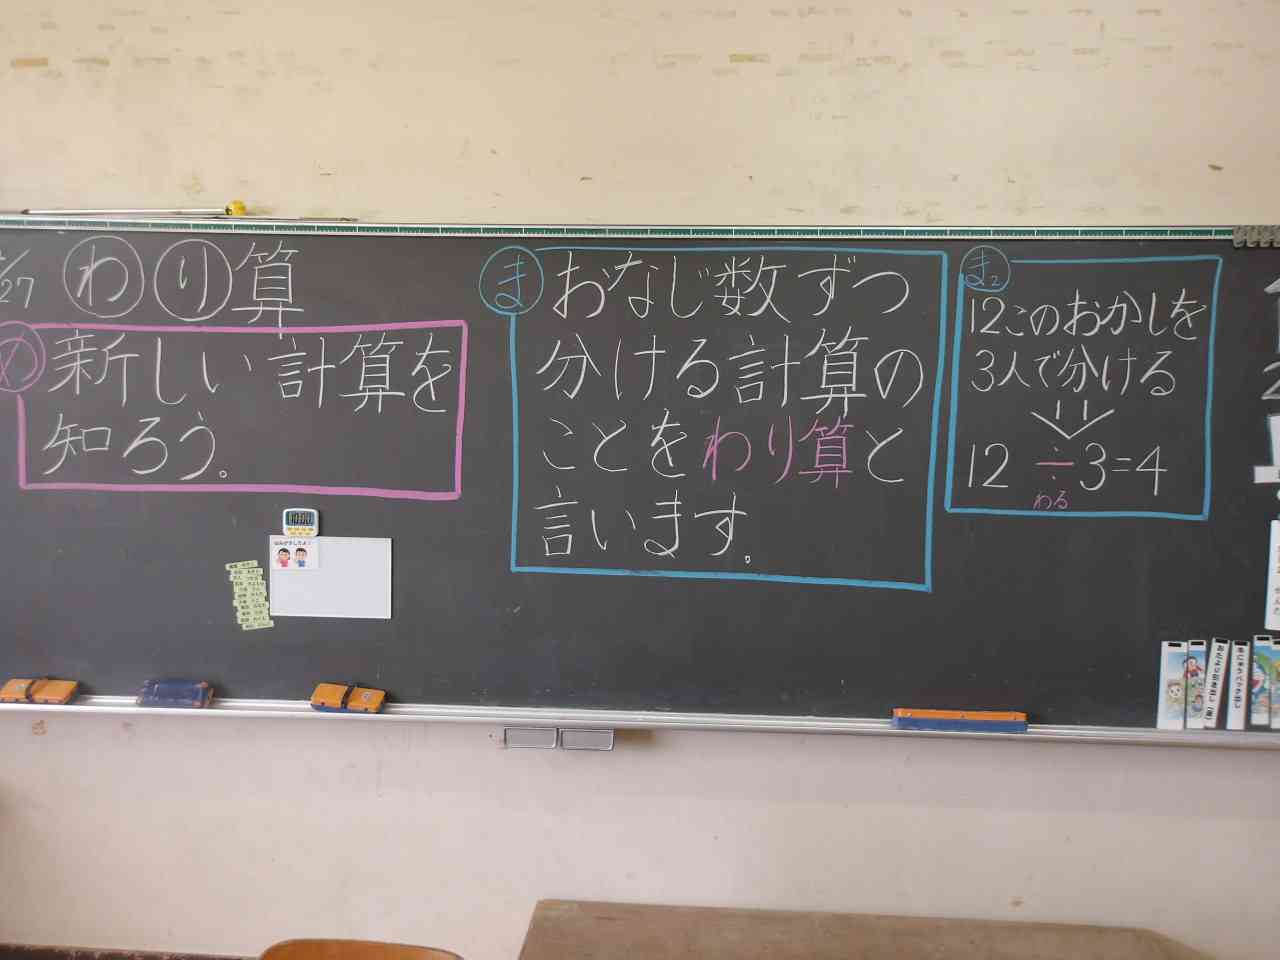 /27
わり算
め
新しい計算を
知ろう。
ま
おなじ数ずつ
分ける計算の
ことをわり算と
言います。
ま2
12このおかしを
3人で分ける
12÷3=4
わる
10:00